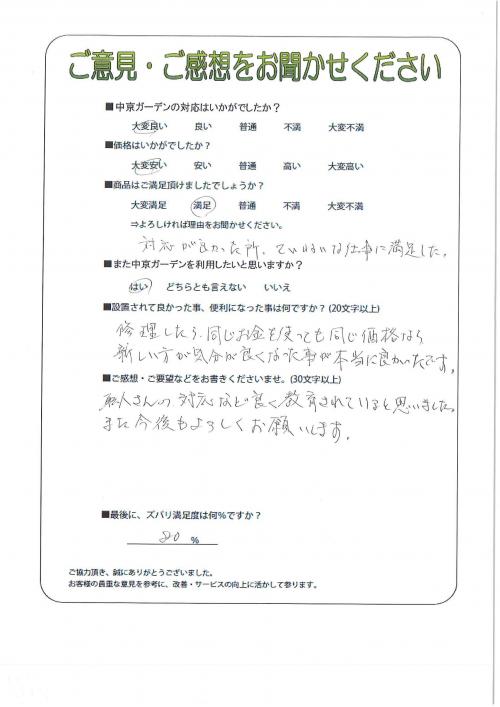 ご意見・ご感想をお聞かせください
■中京ガーデンの対応はいかがでしたか？
大変良い 良い 普通 不満 大変不満
■価格はいかがでしたか？
大変安い 安い 普通 高い 大変高い
■商品はご満足頂けましたでしょうか？
大変満足 満足 普通 不満 大変不満
⇒よろしければ理由をお聞かせください。
対応が良かった所、ていねいな仕事に満足した。
■また中京ガーデンを利用したいと思いますか？
はい どちらとも言えない いいえ
■設置されて良かった事、便利になった事は何ですか？(20文字以上)
修理したら、同じお金を使っても同じ価格なら
新しい方が気分が良くなった事が本当に良かったです。
■ご感想・ご要望などをお書きくださいませ。(30文字以上)
職人さんの対応など良く教育されていると思いました。
また今後もよろしくお願いします。
■最後に、ズバリ満足度は何%ですか？
80 %
ご協力頂き、誠にありがとうございました。
お客様の貴重な意見を参考に、改善・サービスの向上に活かして参ります。